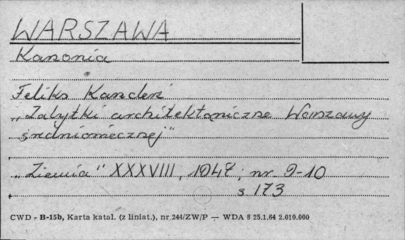 WARSZAWA
Kanonia
Feliks Kanclerz
"Zabytki architektoniczne Warszawy
średniowiecznej"
"Ziemia" XXXVIII, 1947, nr 9-10
s 173
CWD - B-15b, Karta katal. (z liniat.), nr 244/ZW/P — WDA 8 25.1.64 2.010.000